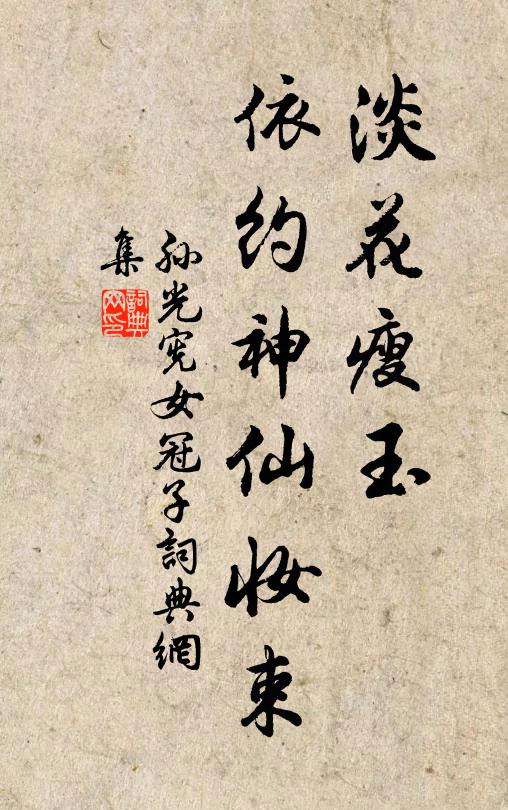 淡花瘦玉
依约神仙妆束
孙光宪女冠子詞典網
集
詞典